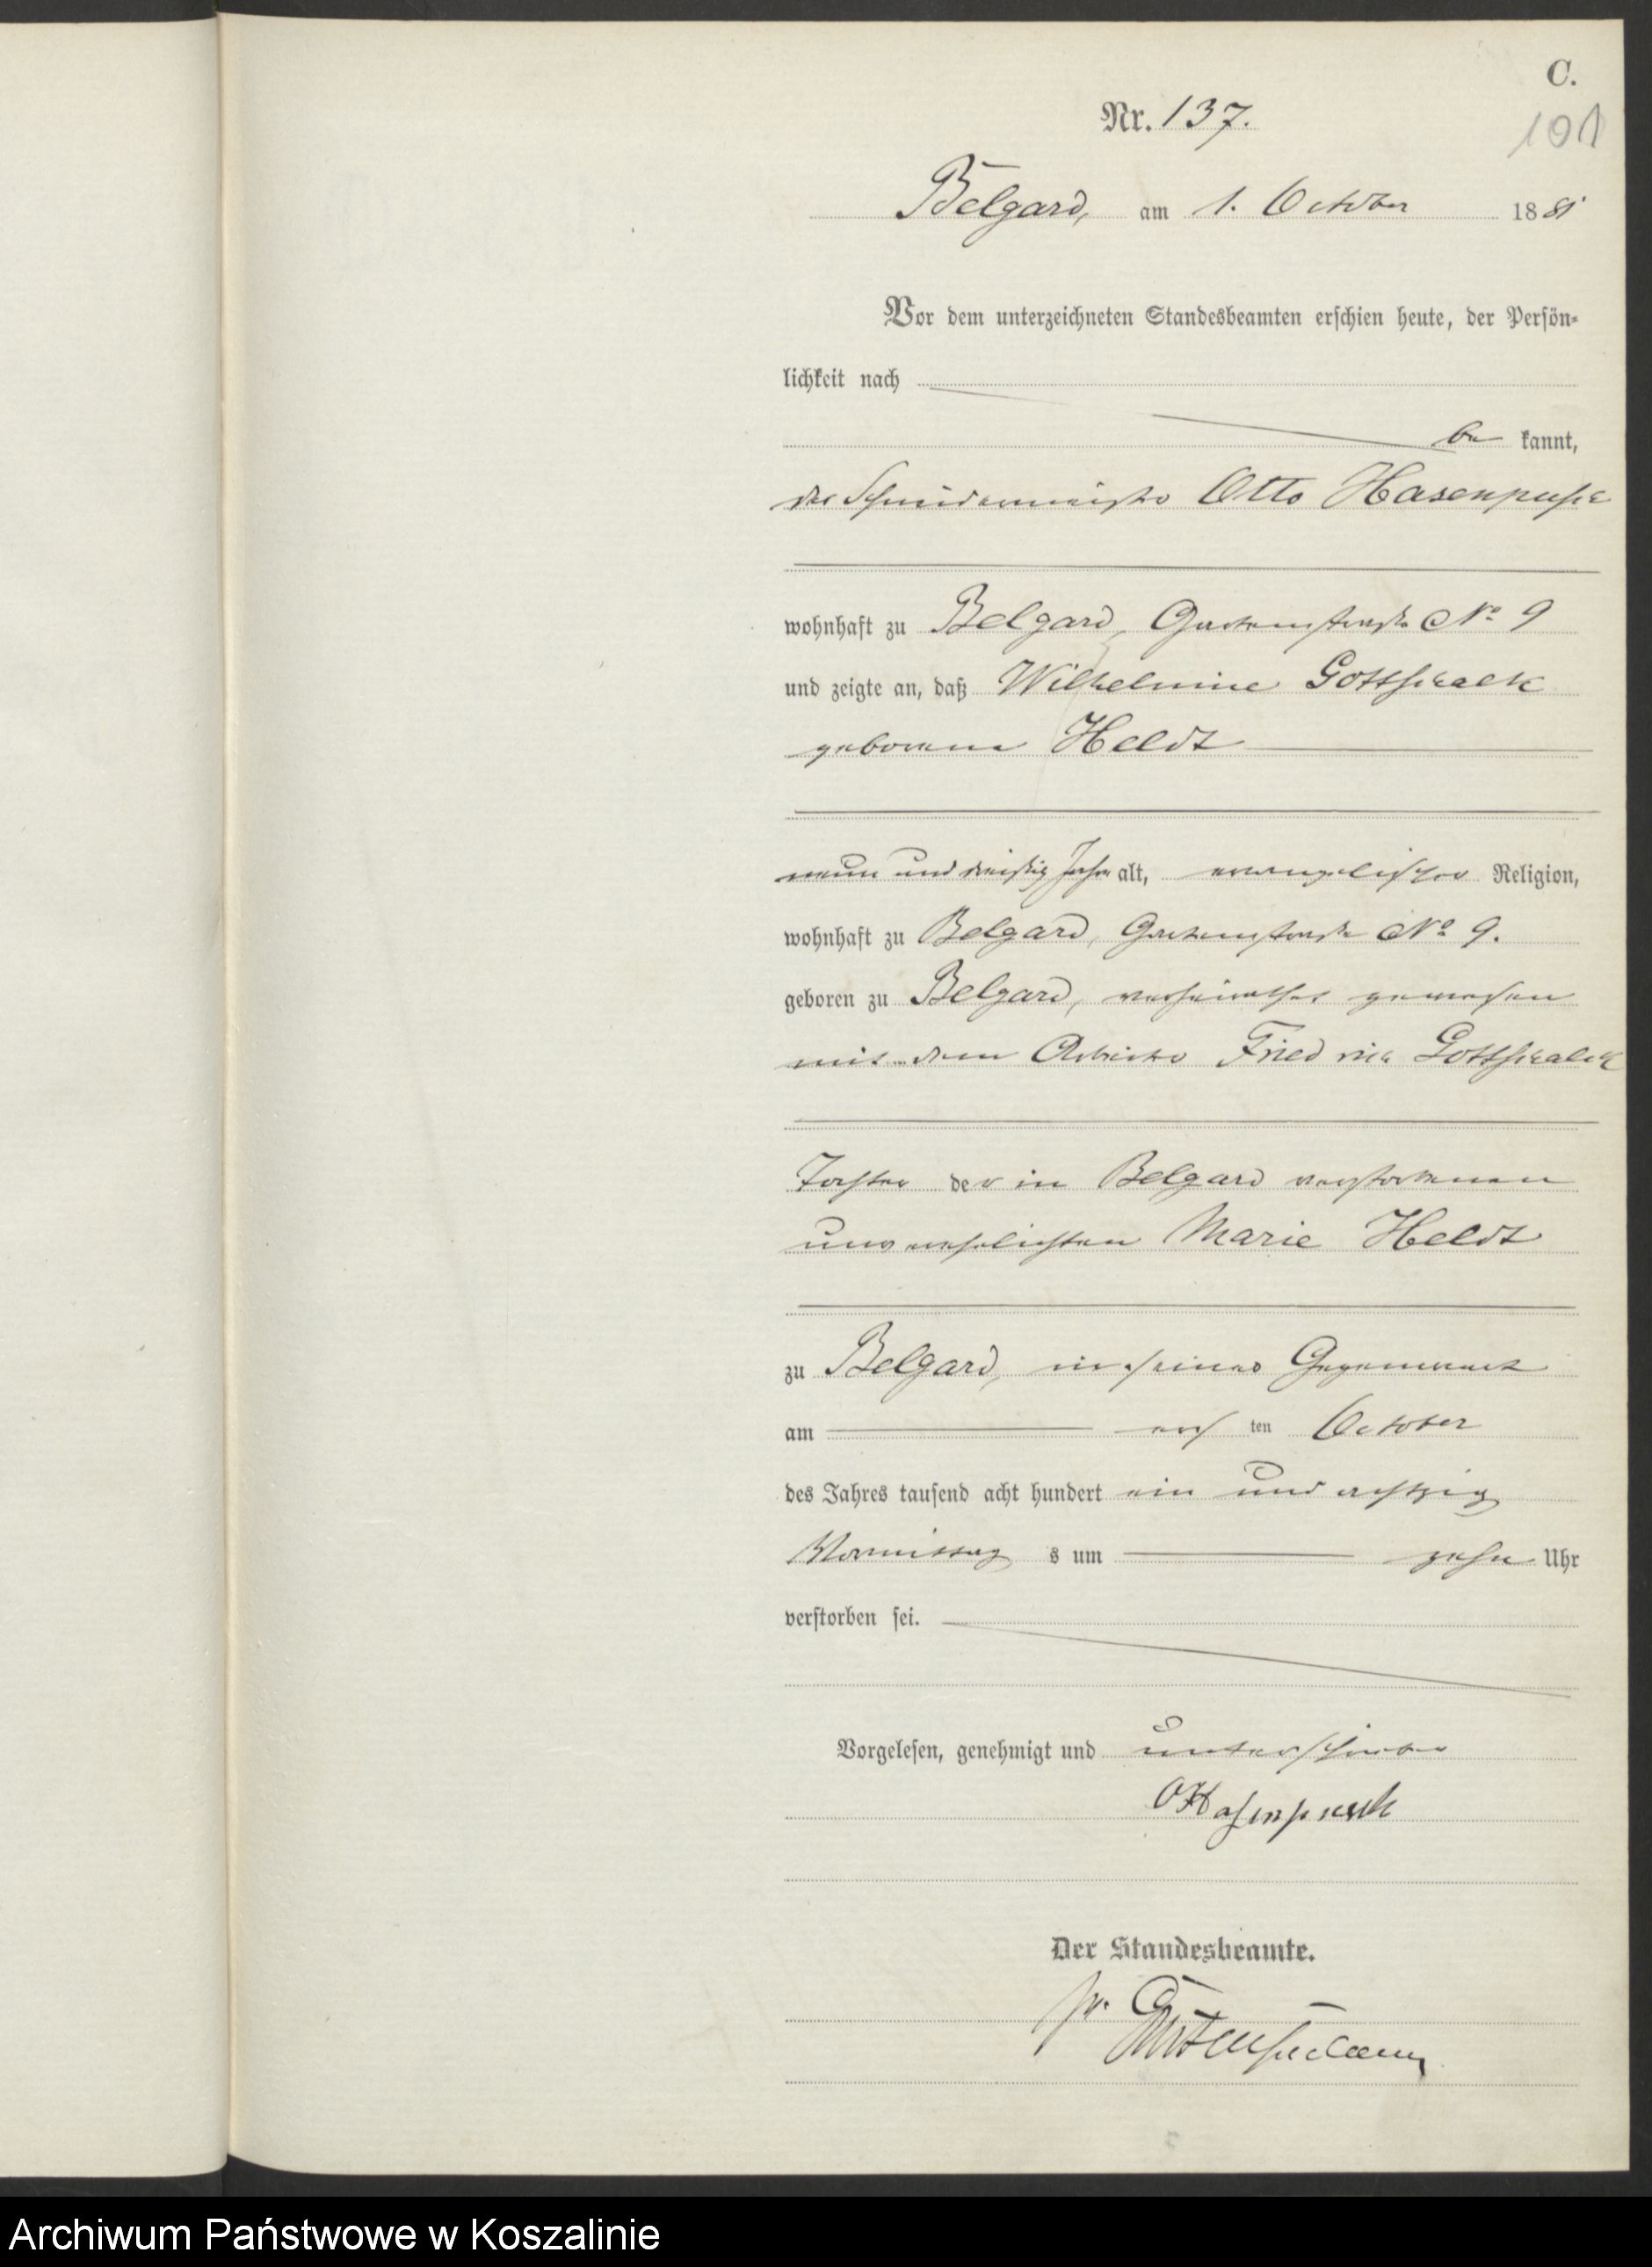 C.
Nr. 137.
101
Belgard, am 1. October 1881
Vor dem unterzeichneten Standesbeamten erschien heute, der Persön-
lichkeit nach
be kannt,
der Schneidermeister Otto Hasenpusch
wohnhaft zu Belgard, Gartenstraße No 9
und zeigte an, daß Wilhelmine Gottschalk
geborene Heldt
neun und dreißig Jahre alt, evangelischer Religion,
wohnhaft zu Belgard, Gartenstraße No 9.
geboren zu Belgard, verheirathet gewesen
mit dem Arbeiter Friedrich Gottschalck
Tochter der in Belgard verstorbenen
unverehelichten Marie Heldt
zu Belgard, in seiner Gegenwart
am ersten October
des Jahres tausend acht hundert ein und achtzig
Vormittag s um zehn Uhr
verstorben sei.
Vorgelesen, genehmigt und unterschrieben
O Hasenpusch
Der Standesbeamte.
Archiwum Państwowe w Koszalinie